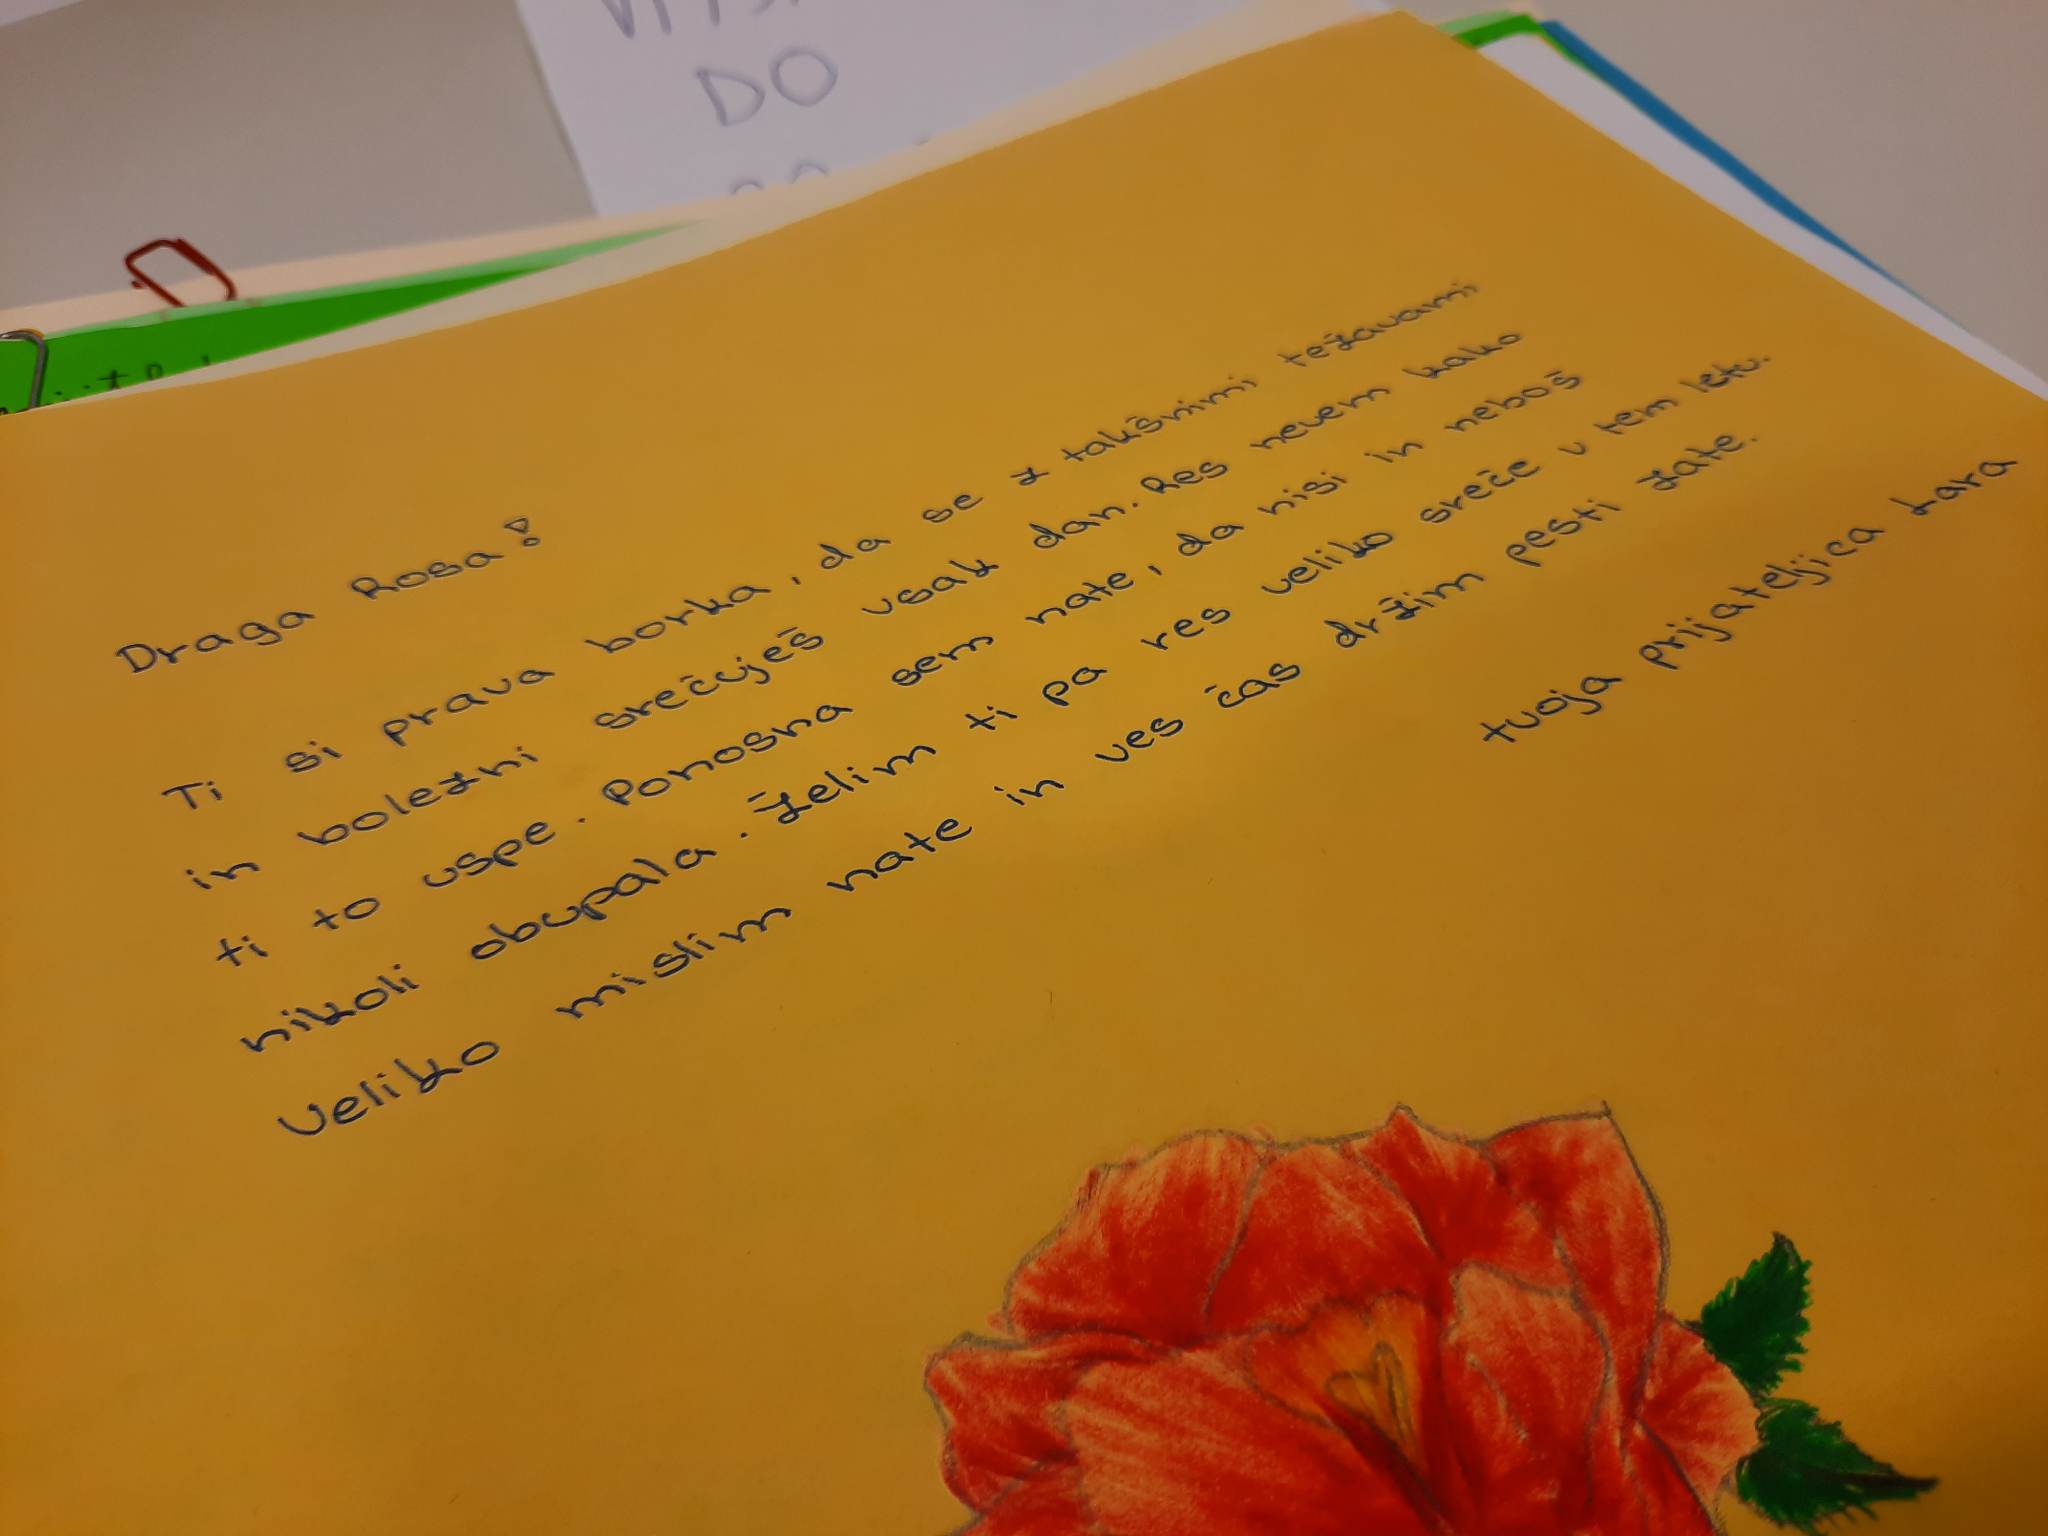 DO
Draga Rosa!
Ti si prava borka, da se z takšnimi težavami
in bolezni srečuješ vsak dan. Res nevem kako
ti to uspe. Ponosna sem nate, da nisi in neboš
nikoli obupala. Želim ti pa res veliko sreče v tem letu.
Veliko mislim nate in ves čas držim pesti zate.
tvoja prijateljica Lara